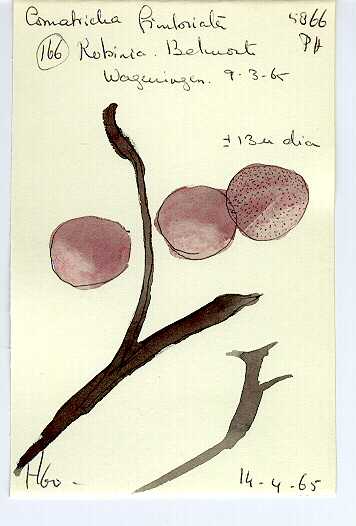 Comatricha fimbriata 5866
(166) Robinia. Belmont PH
Wageningen. 9-3-65
± 13 u dia
H60-
14-4-65